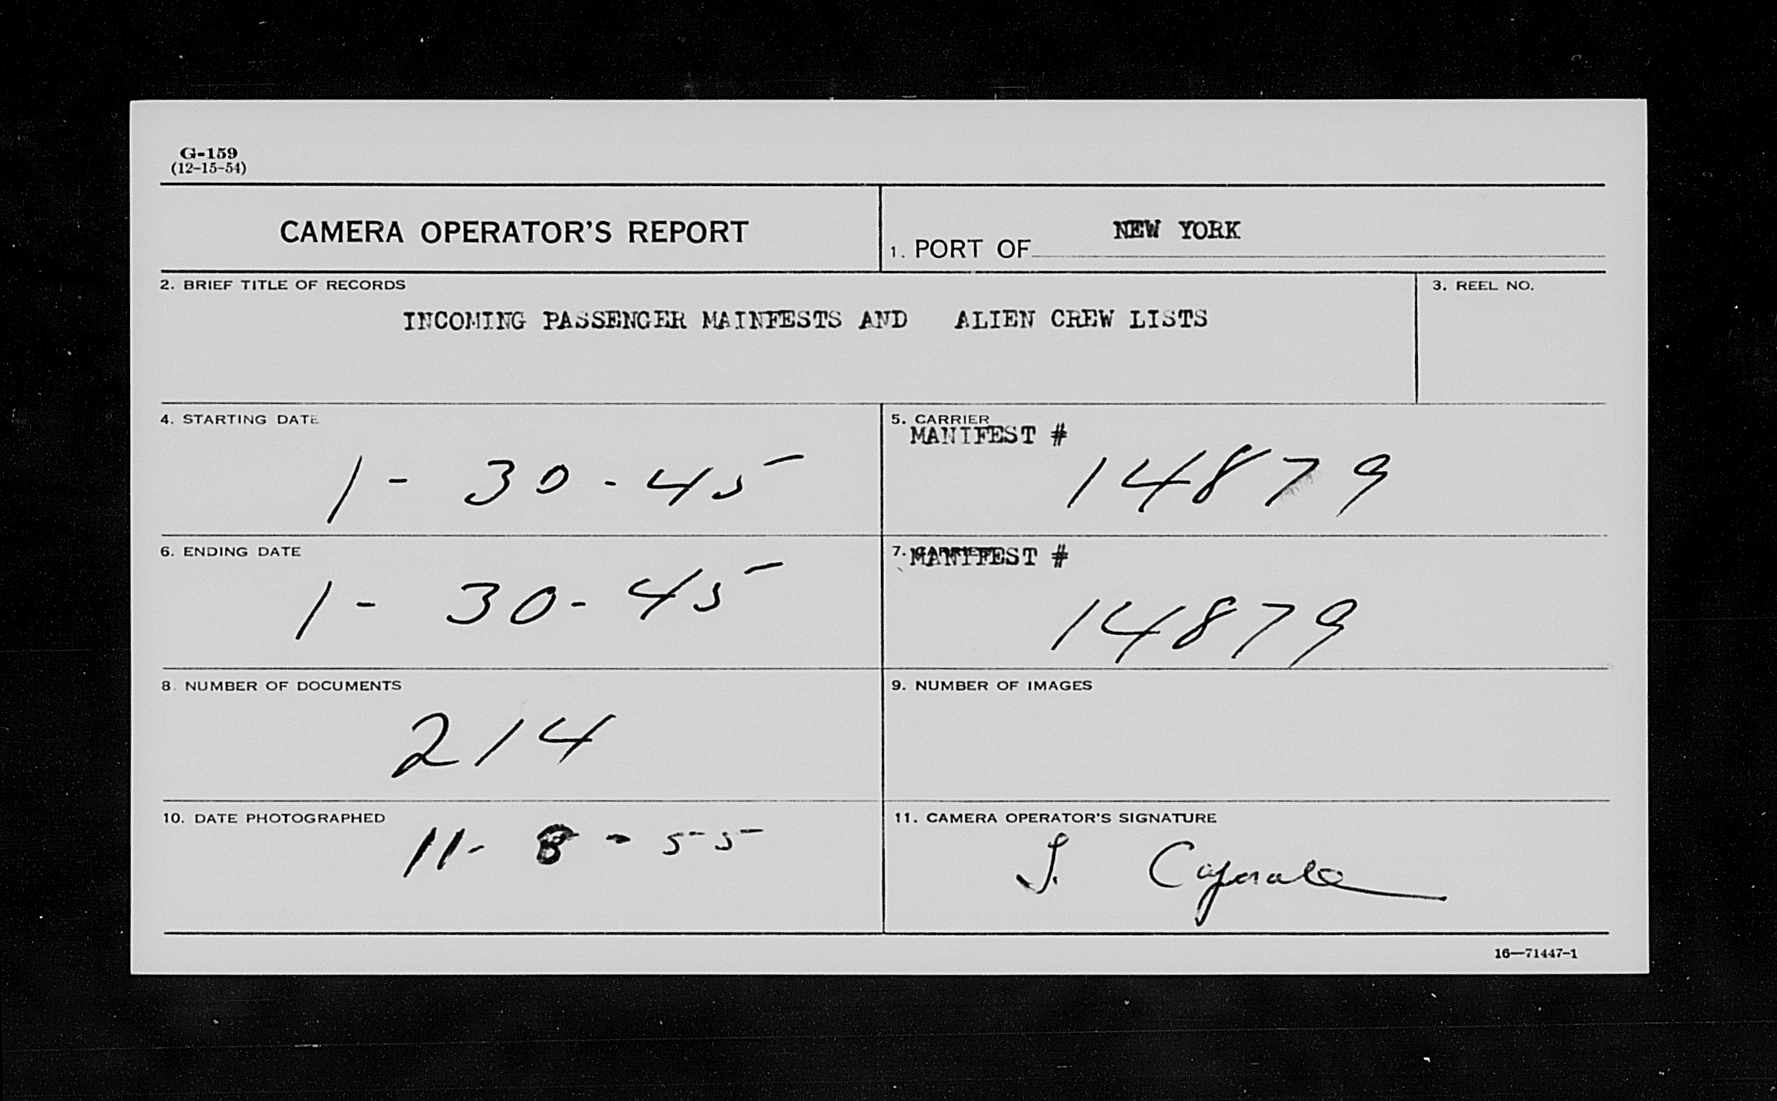 G-159
(12-15-54)
CAMERA OPERATOR'S REPORT
1. PORT OF NEW YORK
2. BRIEF TITLE OF RECORDS
INCOMING PASSENGER MAINFESTS AND ALIEN CREW LISTS
3. REEL NO.
4. STARTING DATE
1-30-45
5. CARRIER
MANIFEST #
14879
6. ENDING DATE
1-30-45
7. CARRIER
MANIFEST #
14879
8. NUMBER OF DOCUMENTS
214
9. NUMBER OF IMAGES
10. DATE PHOTOGRAPHED
11-8-55
11. CAMERA OPERATOR'S SIGNATURE
16—71447-1